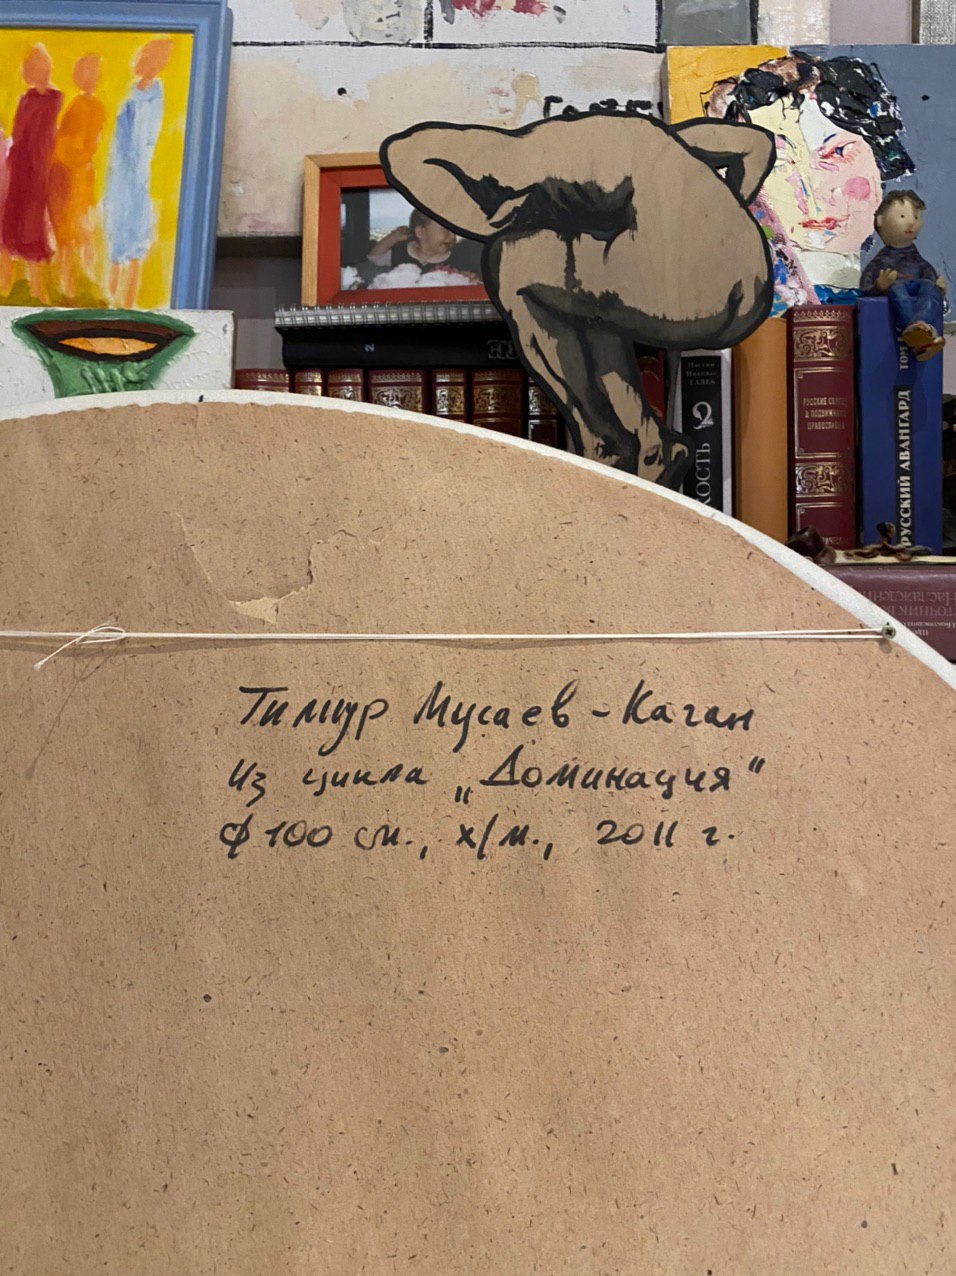 2
2
КОСТЬ
РУССКИЕ
ПРАВОСЛАВИЯ
РУССКИЙ АВАНГАРД
ТОМ
Тимур Мусаев-Каган
из цикла „Доминация"
⌀ 100 см., х/м., 2011 г.